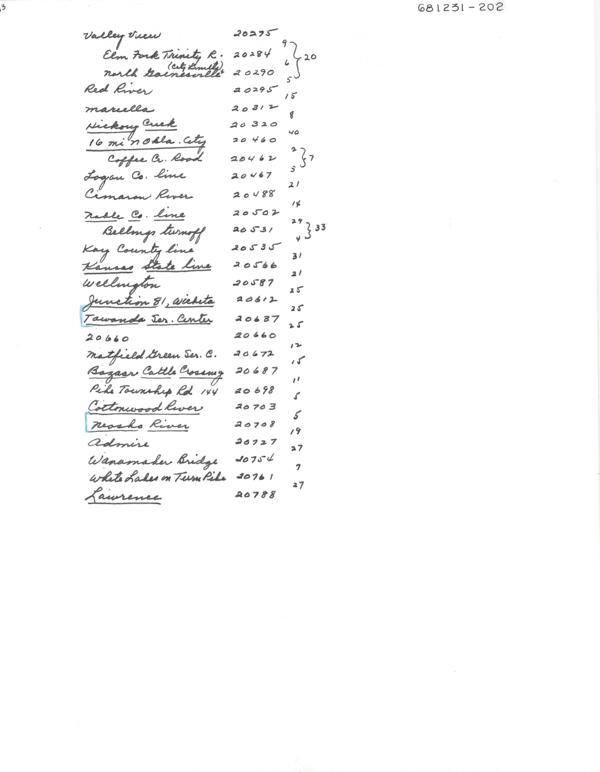 3
681231-202
Valley View 20275
9
Elm Fork Trinity R. 20284 20
(City Limits) 6
North Gainesville 20290
5
Red River 20295
15
Marsella 20312
8
Hickory Creek 20320
40
16 mi N Okla. City 20460
2
Coffee Cr. Road 20462 7
5
Logan Co. line 20467
21
Cimaron River 20488
14
Noble Co. line 20502
29
Bellings turnoff 20531 33
4
Kay County line 20535
31
Kansas State line 20566
21
Wellington 20587
25
Junction 81, Wichita 20612
25
Towanda Ser. Center 20637
25
20660 20660
12
Matfield Green Ser. C. 20672
15
Bazaar Cattle Crossing 20687
11
Pike Township Rd 144 20698
5
Cottonwood River 20703
5
Neosho River 20708
19
Admire 20727
27
Wanamaker Bridge 20754
7
White Lakes on Turn Pike 20761
27
Lawrence 20788